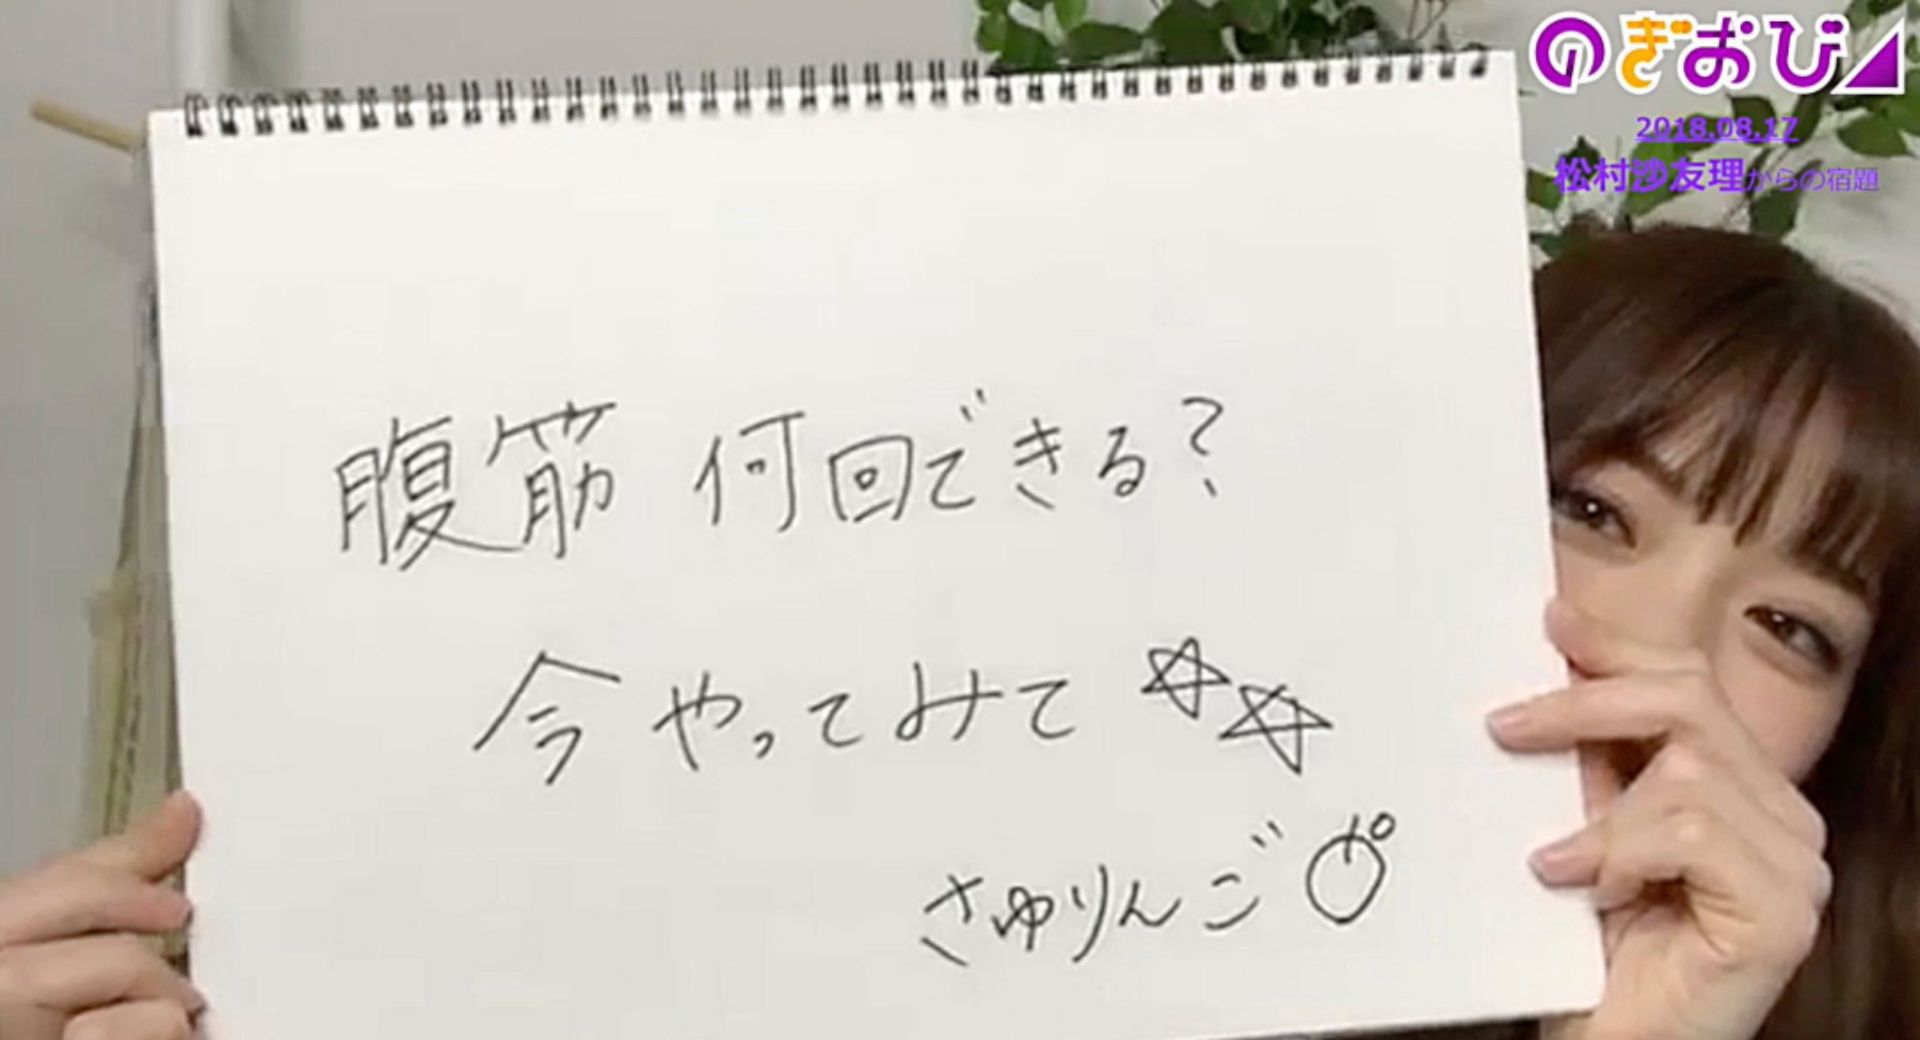 のぎおび
2018.08.17
松村沙友理からの宿題
腹筋 何回できる?
今やってみて☆☆
さゆりんご